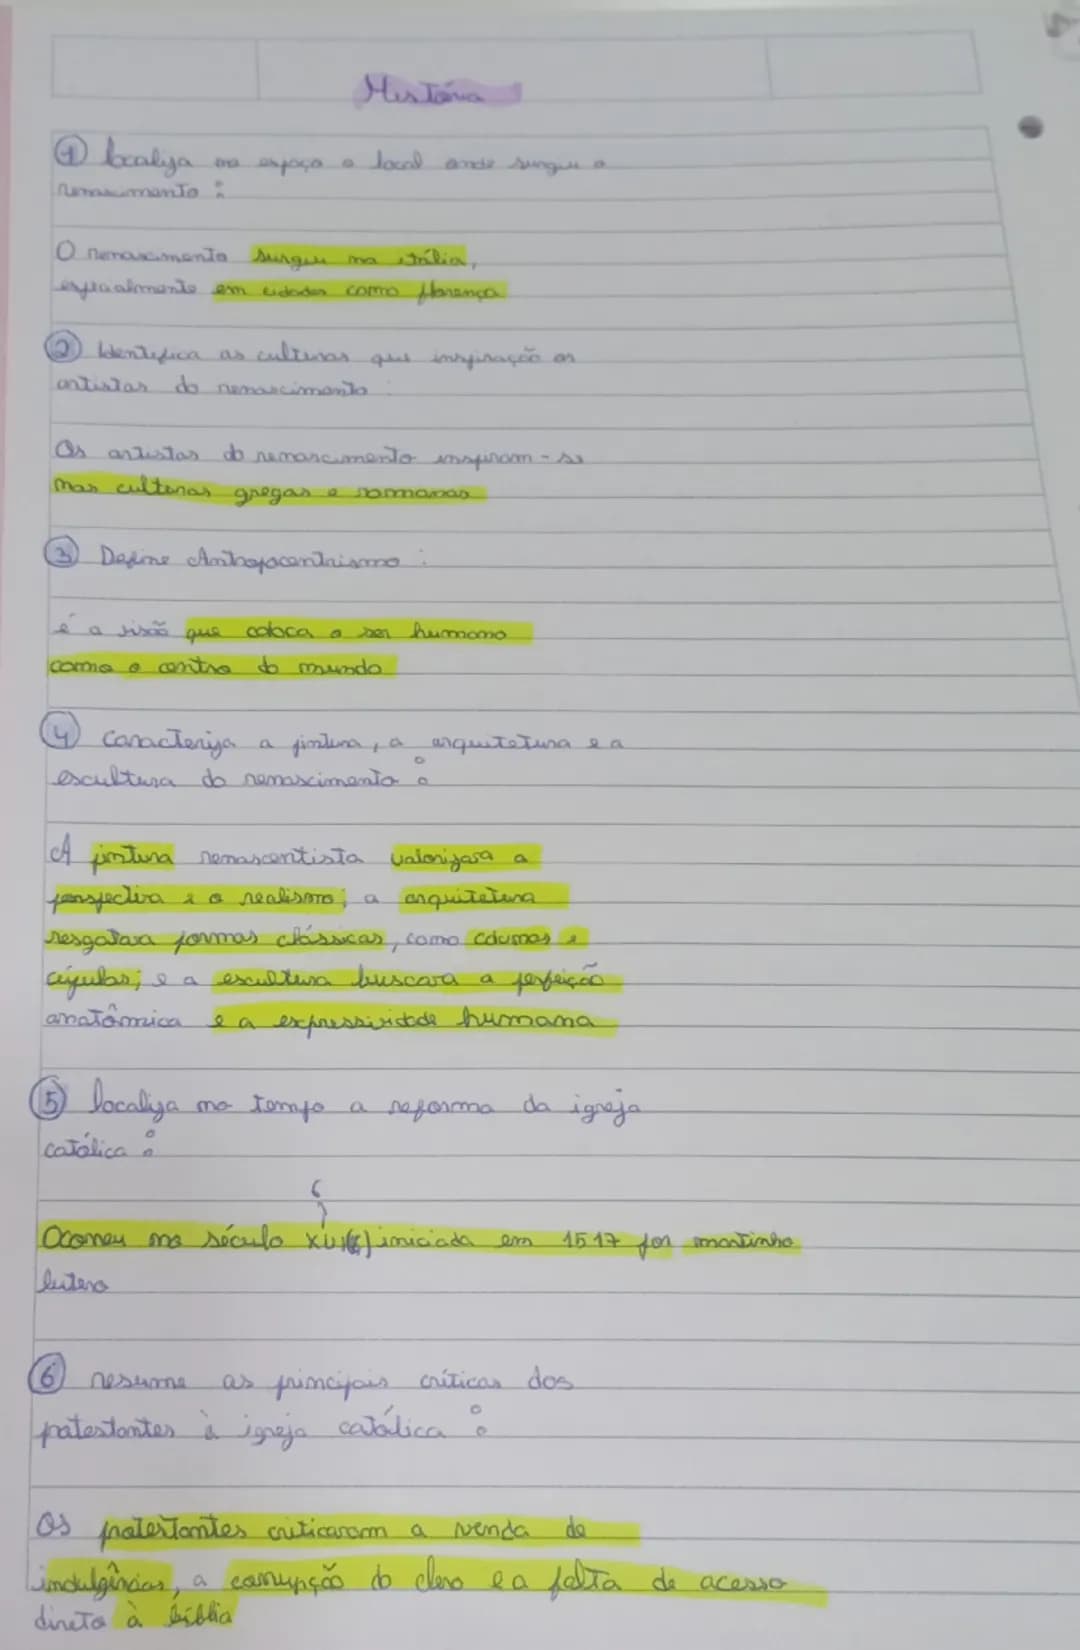 História
① localiza no espaço o local onde surgiu o
renascimento :
O renascimento surgiu na itália,
especialmente em cidades como florença
② Identifica as culturas que inspiração os
artistas do renascimento :
Os artistas do renascimento inspiram-se
nas culturas gregas e romanas
③ Define Antropocentrismo :
é a visão que coloca o ser humano
como o centro do mundo
④ Caracteriza a pintura, a arquitetura e a
escultura do renascimento :
A pintura renascentista valorizava a
perspectiva e o realismo; a arquitetura
resgatava formas clássicas, como colunas e
cúpulas; e a escultura buscava a perfeição
anatômica e a expressividade humana
⑤ localiza no tempo a reforma da igreja
católica :
6
Ocorreu no século XVI( ) iniciada em 1517 por martinho
lutero
⑥ resume as principais críticas dos
patestantes à igreja católica :
Os protestantes criticaram a venda de
indulgências, a corrupção do clero e a falta de acesso
direto à bíblia